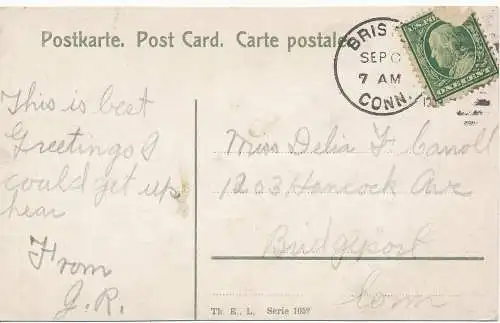 Postkarte. Post Card. Carte postale.
BRIS
SEP
7 AM
CONN.
ONE CENT
This is best
Greetings I
could get up
hear
From
J.R.
Miss Delia F Canoll
1203 Hancock Ave
Bridgeport
Conn
Th. E., L. Serie 1052